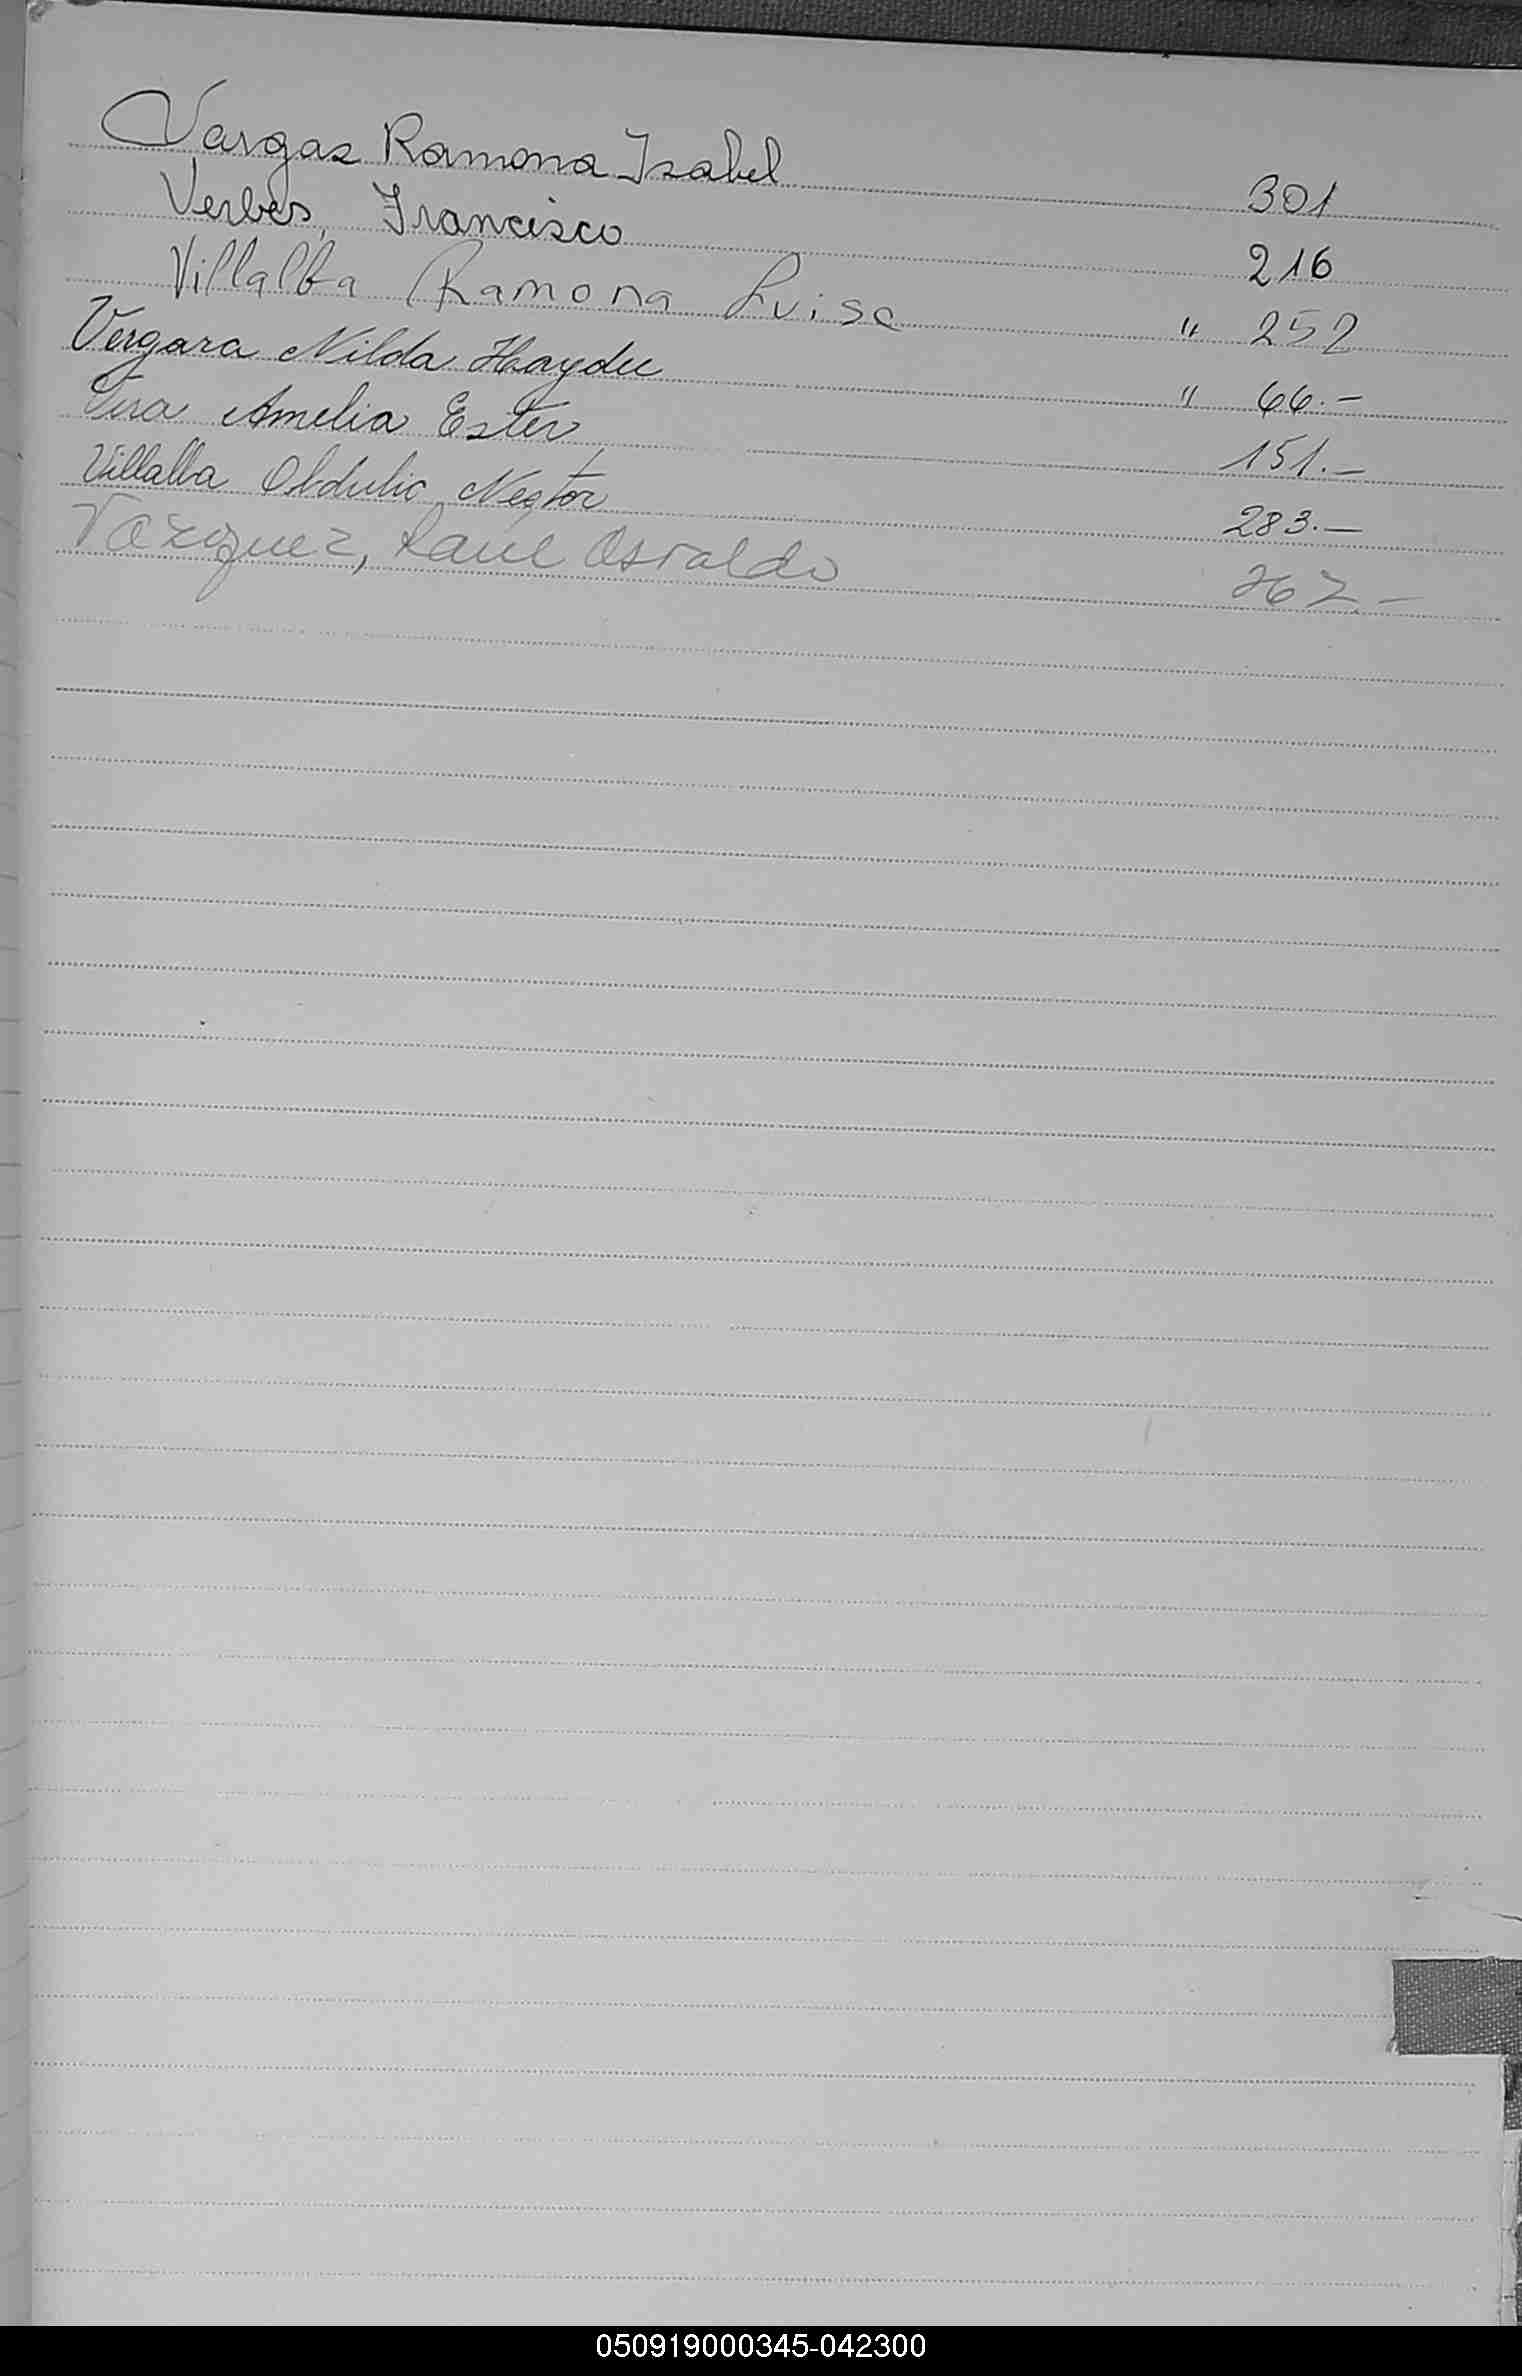 Vargas Ramona Isabel 301
Verbes, Francisco 216
Villalba Ramona Luisa " 252
Vergara Nilda Haydee " 66.-
Vera Amelia Ester 151.-
Villalba Obdulio Nestor 283.-
Vazquez, Raúl Osvaldo
050919000345-042300